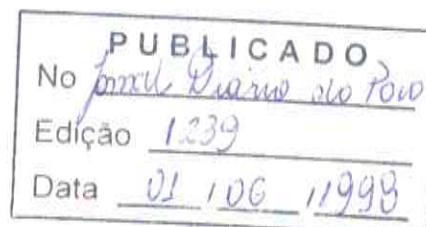 PUBLICADO
No Jornal Diário do Povo
Edição 1239
Data 01 / 06 / 1998